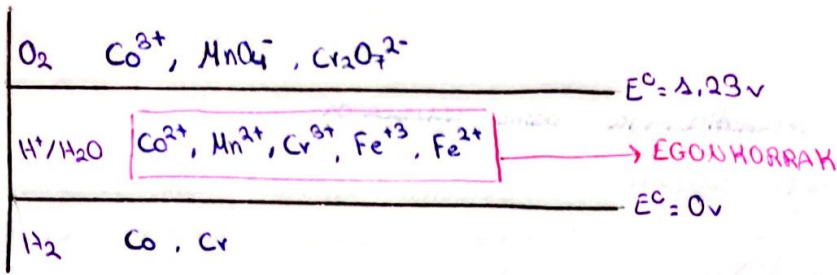 O₂ Co³⁺, MnO₄⁻, Cr₂O₇²⁻
E⁰= 1,23v
H⁺/H₂O Co²⁺, Mn²⁺, Cr³⁺, Fe⁺³, Fe²⁺ → EGONKORRAK
E⁰= 0v
H₂ Co, Cr